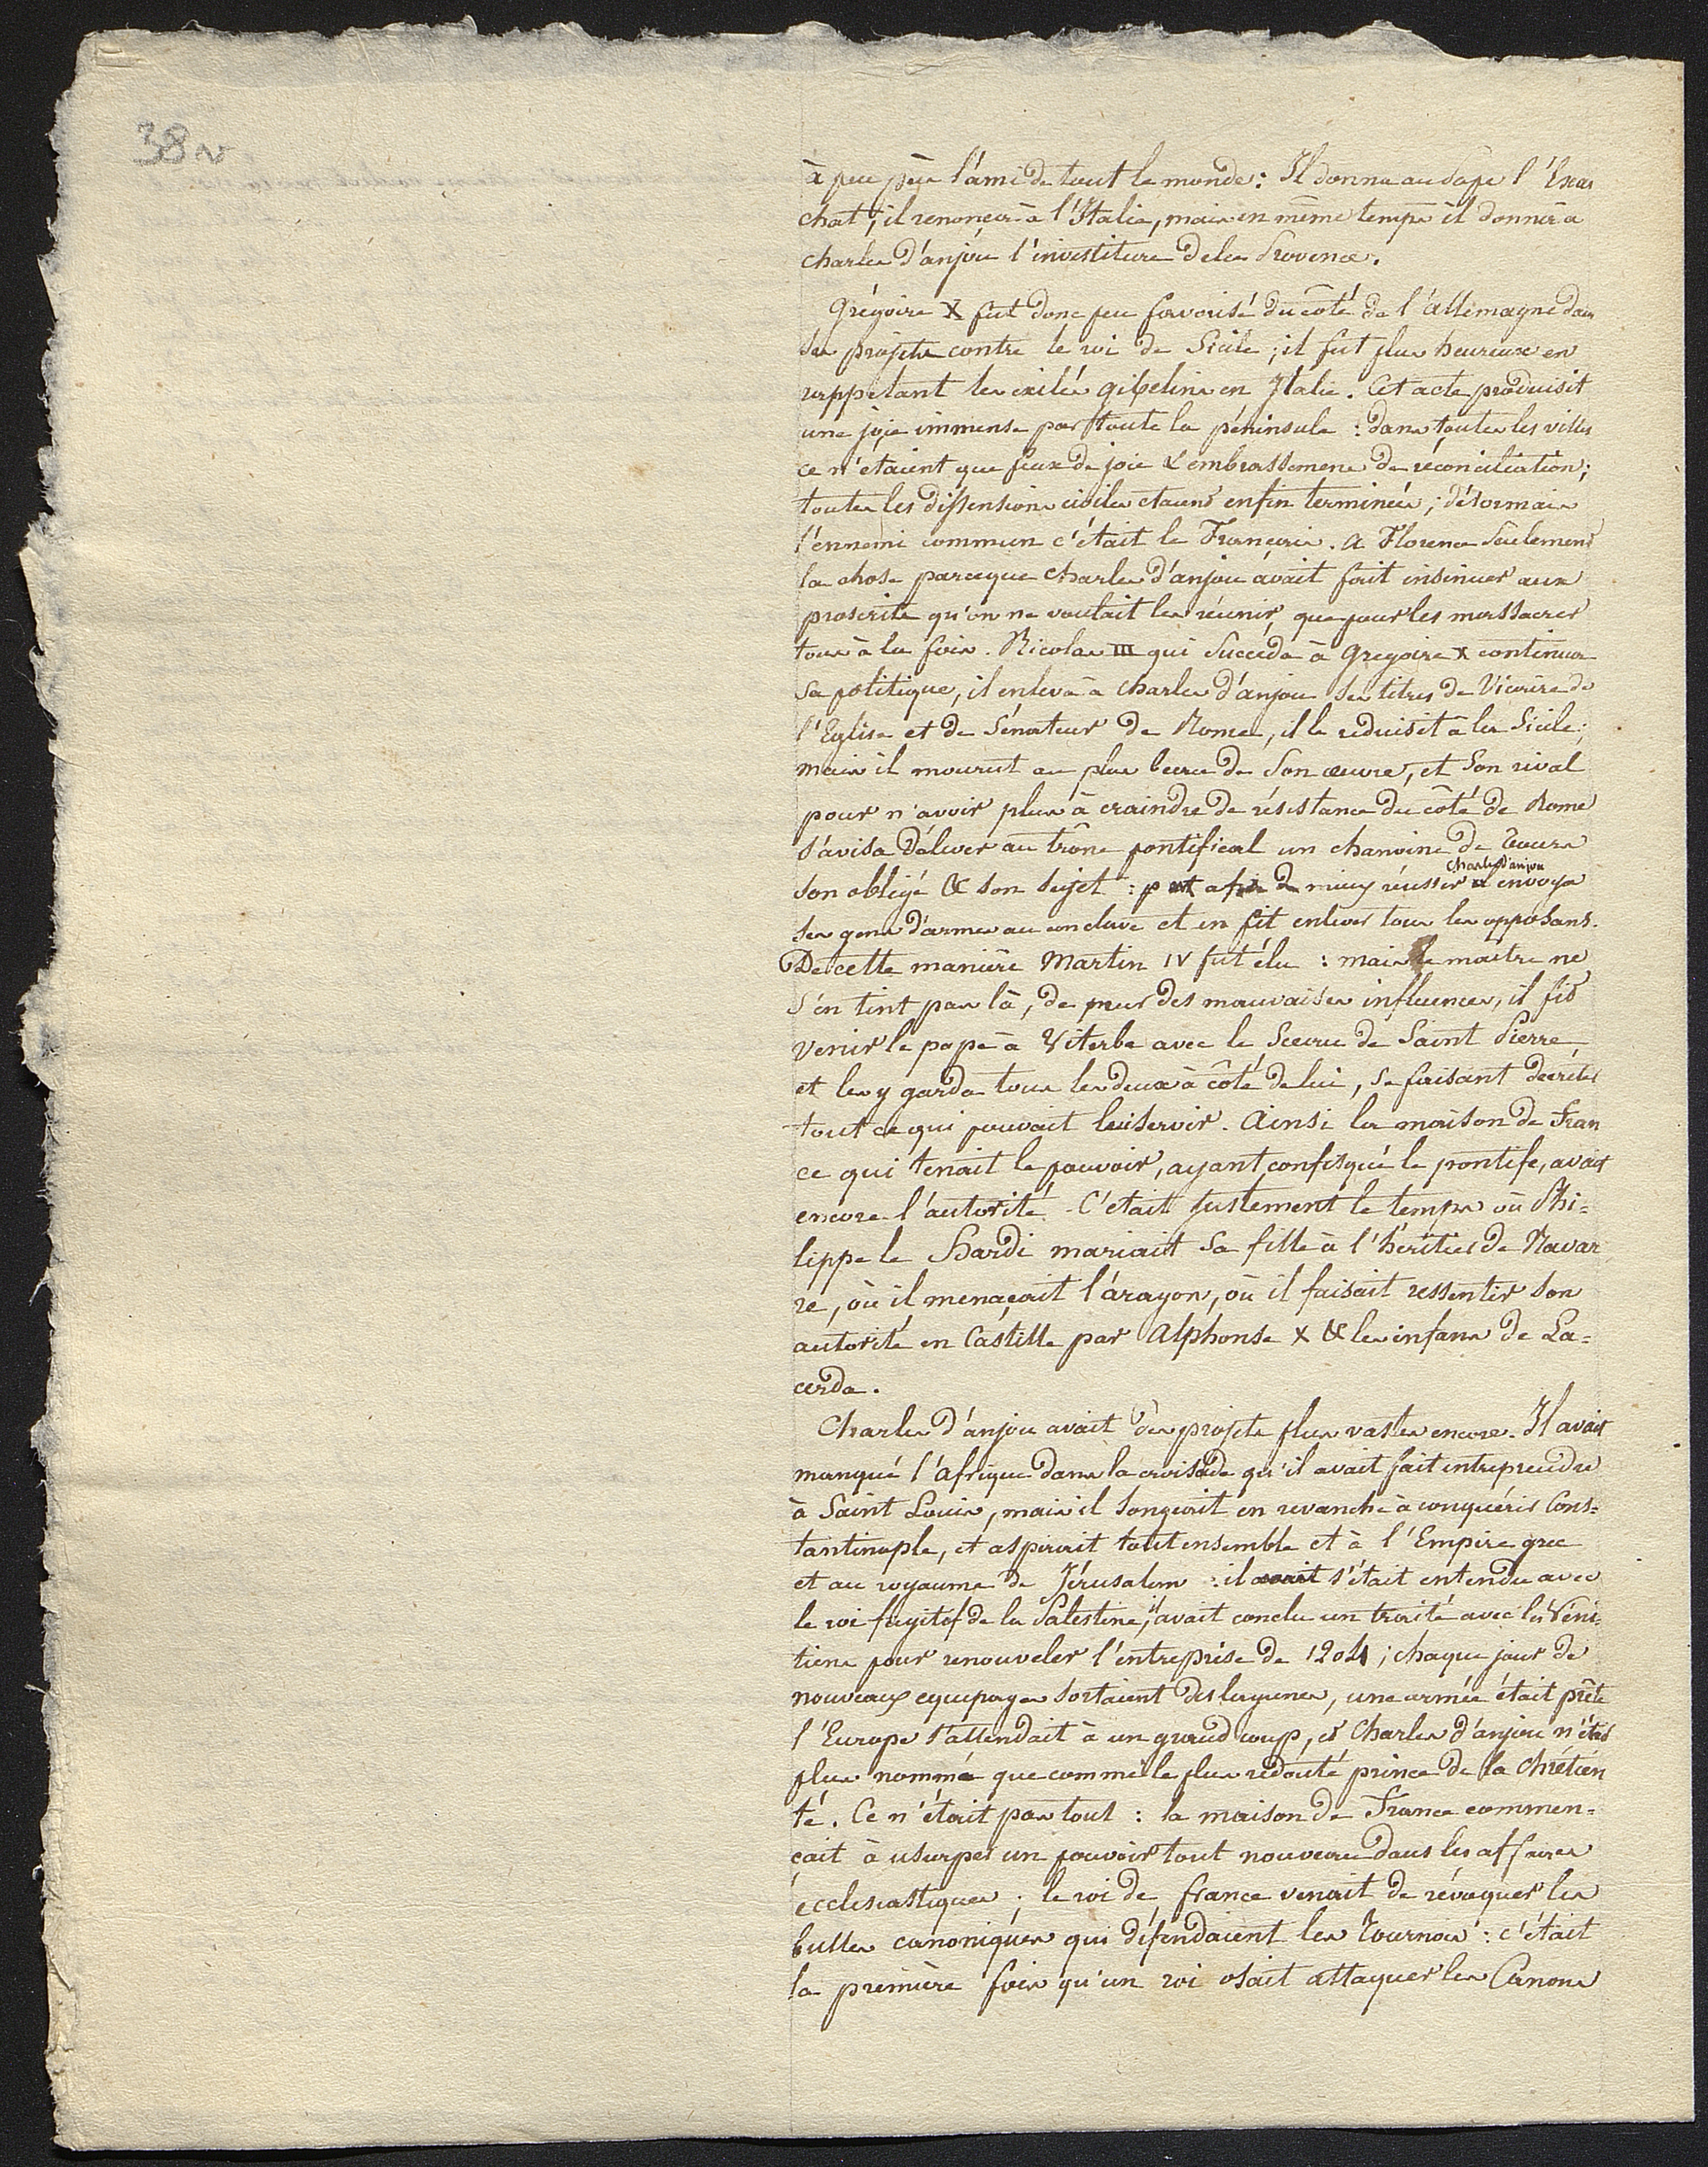 38 v
à peu près l'ami de tout le monde : Il donna au Pape l'Exar
chat ; il renonça à l'Italie, mais en même temps il donnoit à
charles d'anjou l'investiture de la Provence.
Grégoire X fut donc peu favorisé du côté de l'allemagne dans
ses projets contre le roi de Sicile ; il fut plus heureux en
rappelant les exilés gibelins en Italie. Cet acte produisit
une joie immense par toute la péninsule : dans toutes les villes
ce n'etaient que feux de joie & embrassemens de réconciliation ;
toutes les dissensions civiles etaient enfin terminées ; désormais
l'ennemi commun c'était le Français. A Florence seulement
la chose parceque charles d'anjou avait fait insinuer aux
proscrits qu'on ne voulait les réunir, que pour les massacrer
tous à la fois. Nicolas III qui succéda à Gregoire X continua
sa politique, il enleva à charles d'anjou ses titres de Vicaire de
l'Eglise et de Sénateur de Rome, il le reduisit à la Sicile ;
mais il mourut au plus beau de son œuvre, et son rival
pour n'avoir plus à craindre de résistance du côté de Rome
s'avisa d'élever au trône pontifical un chanoine de Tours
Charles d'anjou
son obligé & son sujet : afin de mieux réussir il envoya
ses gens d'armes au conclave et en fit enlever tous les opposans.
De cette manière Martin IV fut élu : mais le maitre ne
s'en tint pas là, de peur des mauvaises influences, il fit
venir le pape à Viterbe avec le Sceau de Saint Pierre
et les y garda tous les deux à côté de lui, se faisant decréter
tout ce qui pouvait lui servir. Ainsi la maison de Fran
ce qui tenait le pouvoir, ayant confisqué le pontife, avait
encore l'autorité. C'était justement le temps où Phi=
lippe le Hardi mariait sa fille à l'héritier de Navar
re, où il menaçait l'aragon, où il faisait ressentir son
autorité en Castille par Alphonse X & les infans de La=
cerda.
Charles d'anjou avait des projets plus vastes encore. Il avait
manqué l'afrique dans la croisade qu'il avait fait entreprendre
à Saint Louis, mais il songeait en revanche à conquérir Cons=
tantinople, et aspirait tout ensemble et à l'Empire grec
et au royaume de Jérusalem : il avait s'était entendu avec
le roi fugitif de la Palestine, il avait conclu un traité avec les Véni=
tiens pour renouveler l'entreprise de 1204 ; chaque jour de
nouveaux equipages sortaient des lagunes, une armée était prête
l'Europe s'attendait à un grand coup, et Charles d'anjou n'était
plus nommé que comme le plus redouté prince de la chrétien
té. Ce n'était pas tout : la maison de France commen=
çait à usurper un pouvoir tout nouveau dans les affaires
ecclesiastiques ; le roi de france venait de révoquer les
bulles canoniques qui défendaient les Tournois : c'était
la première fois qu'un roi osait attaquer les Canons